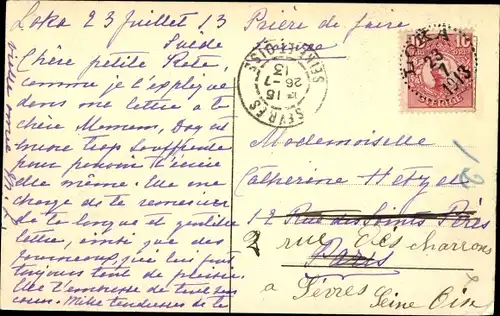 Loka 23 Juillet 13
Suède
Chère petite Kate,
comme je t'explique
dans une lettre à ta
chère Momem, Dag est
encore trop souffrante
pour pouvoir t'écrire
elle même. Elle me
charge de te remercier
de ta longue et gentille
lettre, ainsi que des
journaux qui lui font
toujours tant de plaisir.
Elle t'embrasse de tout son
coeur. Mille tendresses de ta
Prière de faire
SEVRES
15
26
13
SEINE-ET-OISE
10
23
1913
SVERIGE
Mademoiselle
Catherine Hetzel
12 Rue des Saints Pères
2 rue des charrons
Paris
à Sèvres
Seine Oise